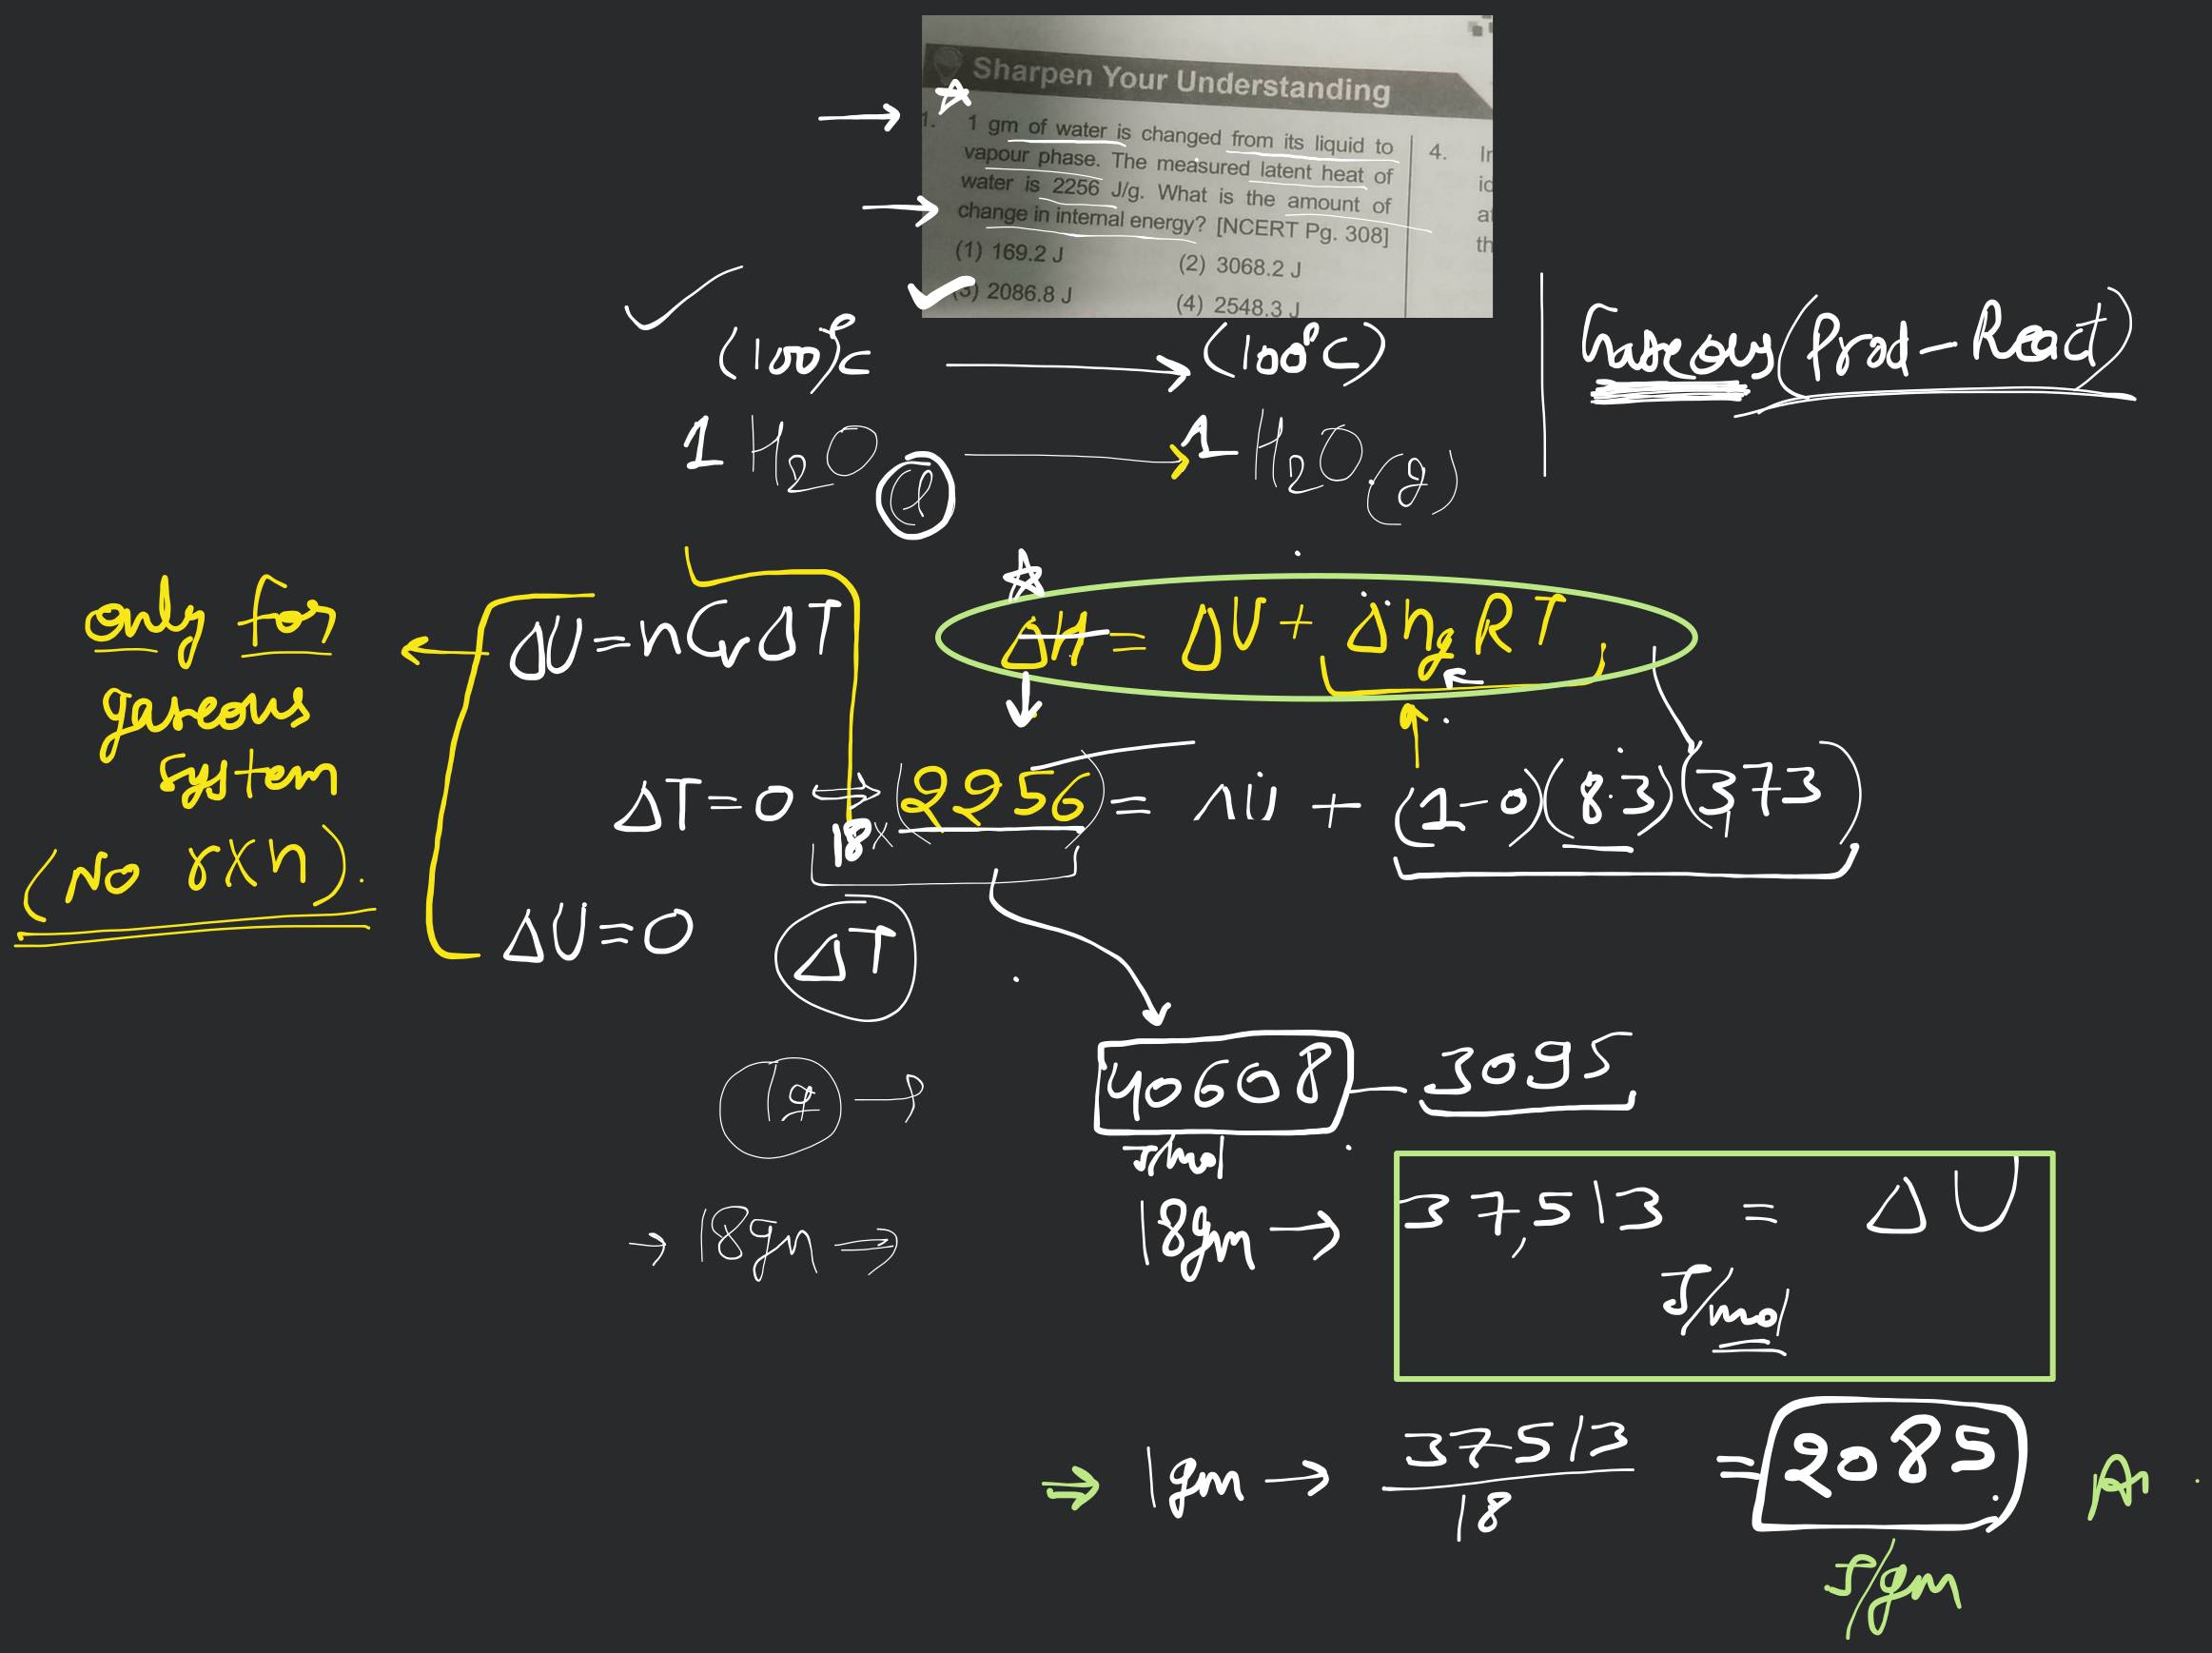 Sharpen Your Understanding
1. 1 gm of water is changed from its liquid to
vapour phase. The measured latent heat of
water is 2256 J/g. What is the amount of
change in internal energy? [NCERT Pg. 308]
(1) 169.2 J (2) 3068.2 J
(3) 2086.8 J (4) 2548.3 J
4. In
id
at
th
(100°C ⟶ (100°C)
Gaseous (Prod - React)
1 H₂O (l) ⟶ 1 H₂O (g)
only for
gaseous
system
(No rxn).
ΔU = nCvΔT
ΔH = ΔU + ΔngRT
ΔT = 0 ⇒ 18 × (2256) = ΔU + (1-0)(8.3)(373)
ΔU = 0
ΔT
1g →
40608 - 3095
J/mol
→ 18gm ⇒
18gm → 37,513 = ΔU
J/mol
⇒ 1gm → 37513/18 = 2085
J/gm